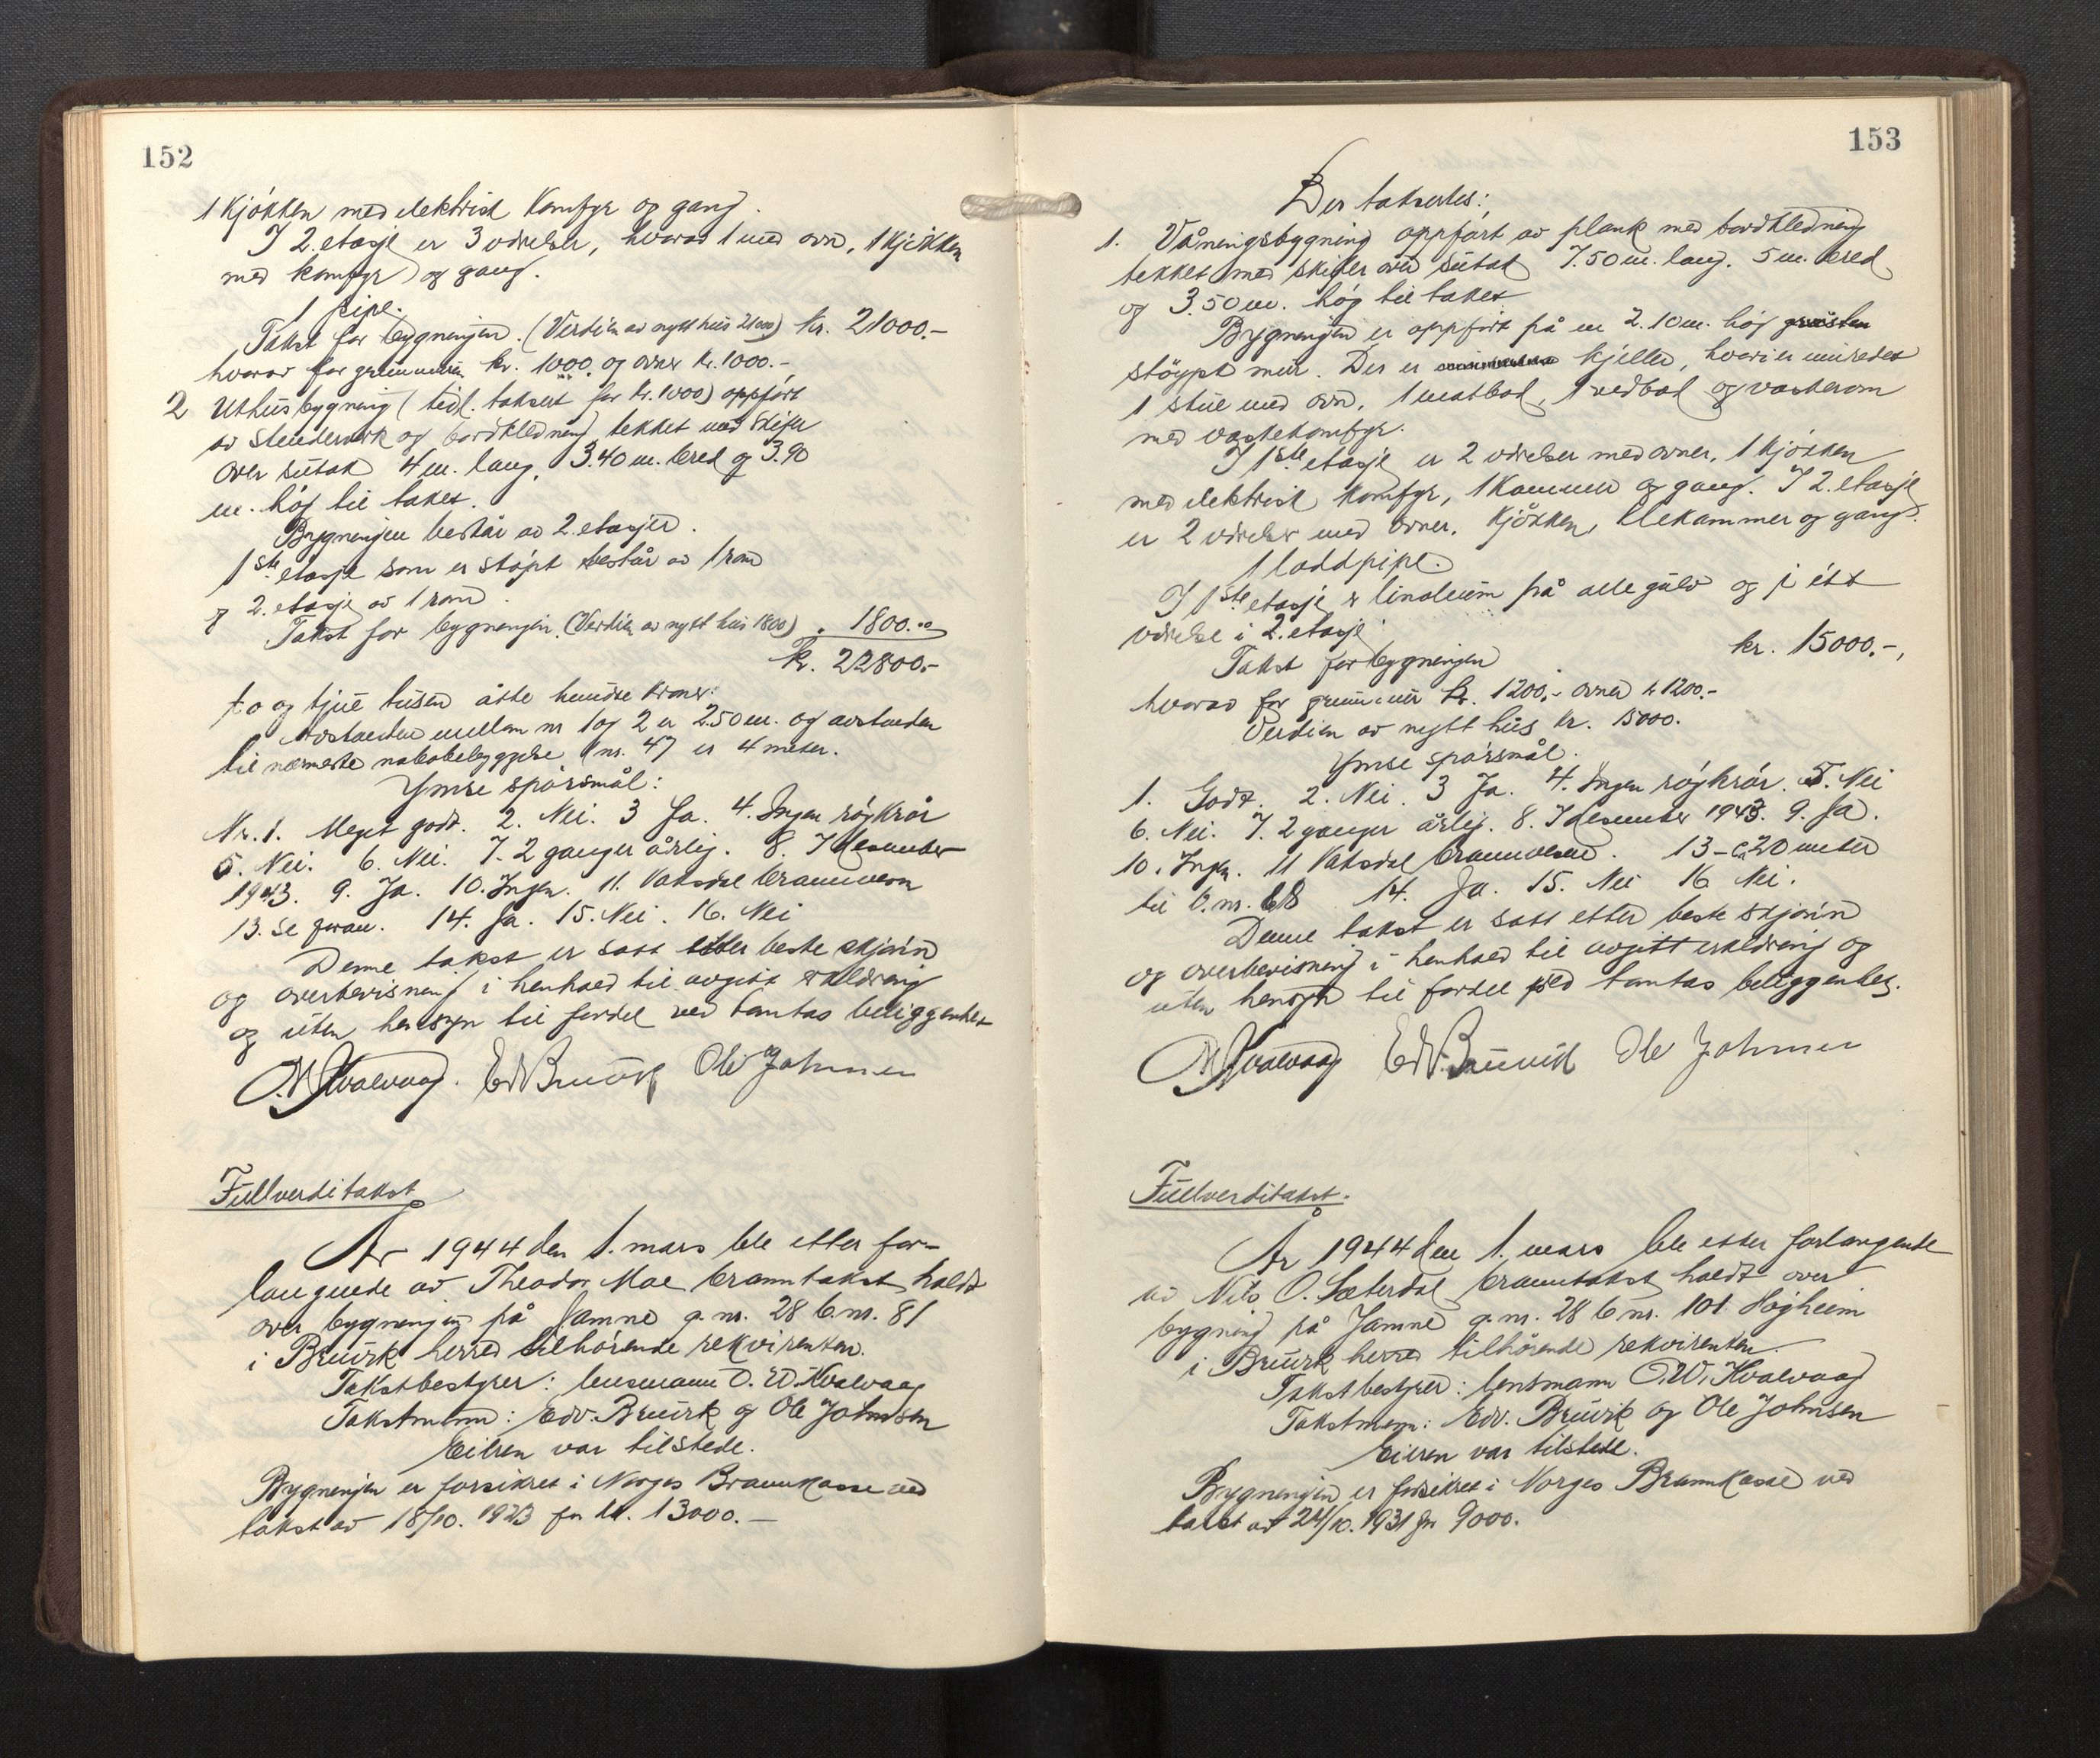 152
1 kjøkken med elektrisk komfyr og gang.
I 2. etasje er 3 værelser, hvorav 1 med ovn, 1 kjøkken
med komfyr og gang.
1 pipe.
Takst for bygningen. (Verdien av nytt hus 21000) kr. 21000.-
hvorav for grunnmur kr. 1000 og ovner kr. 1000.-
2 Uthusbygning (tidl. taksert for kr. 1000) oppført
av stenderverk og bordkledning tekket med skifer
over sutak 4 m. lang, 3.40 m. bred og 3.90
m. høg til taket.
Bygningen består av 2. etasjer.
1ste etasje som er støpt består av 1 rom
og 2. etasje av 1 rom.
Takst for bygningen. (Verdien av nytt hus 1800) " 1800.00
kr. 22800.-
to og tjue tusen åtte hundre kroner.
Avstanden mellem nr 1 og 2 er 2.50 m. og avstanden
til nærmeste nabobebyggelse bnr. 47 er 4 meter.
Ymse spørsmål:
Nr. 1. Meget godt. 2. Nei. 3 Ja. 4. Ingen røykrør
5. Nei. 6. Nei. 7. 2 ganger årlig. 8. 7 desember
1943. 9. Ja. 10. Ingen. 11. Vaksdal brannvern
13. Se foran. 14. Ja. 15. Nei. 16. Nei
Denne takst er satt etter beste skjønn
og overbevisning i henhold til avgitt erklæring
og uten hensyn til fordel ved tomtas beliggenhet
O.W. Kvalvaag. Edv Bruvik Ole Johnsen
Fullverditakst
År 1944 den 1. mars ble etter for-
langende av Theodor Moe branntakst holdt
over bygningen på Jamne g.nr. 28 b.nr. 81
i Bruvik herred tilhørende rekvirenten.
Takstbestyrer: lensmann O. W. Kvalvaag
Takstmenn: Edv. Bruvik og Ole Johnsen
Eieren var tilstede.
Bygningen er forsikret i Norges Brannkasse ved
takst av 18/10. 1923 for kr. 13000.-
153
Der takseres:
1. Våningsbygning oppført av plank med bordkledning
tekket med skifer over sutak 7.50 m. lang. 5 m. bred
og 3.50 m. høg til taket
Bygningen er oppført på en 2.10 m. høg
støypt mur. Der er kjeller, hvori er innredet
1 stue med ovn, 1 matbod, 1 vedbod og vaskerom
med vaskekomfyr.
I 1ste etasje er 2 værelser med ovner, 1 kjøkken
med elektrisk komfyr, 1 kammer og gang. I 2. etasje
er 2 værelser med ovner, kjøkken, klekammer og gang.
1 loddpipe.
I 1ste etasje er linoleum på alle gulv og i ett
værelse i 2. etasje
Takst for bygningen kr. 15000.-,
hvorav for grunnmur kr. 1200.- ovner kr 1200.-
Verdien av nytt hus kr. 15000.
Ymse spørsmål.
1. Godt. 2. Nei. 3 Ja. 4. Ingen røykrør. 5. Nei
6. Nei. 7. 2 ganger årlig. 8. 7 desember 1943. 9. Ja.
10. Ingen. 11 Vaksdal brannvern. 13 - ca 20 meter
til b.nr. 68 14. Ja. 15. Nei 16 Nei.
Denne takst er satt etter beste skjønn
og overbevisning i henhold til avgitt erklæring og
uten hensyn til fordel ved tomtas beliggenhet.
O.W. Kvalvaag Edv. Bruvik Ole Johnsen
Fullverditakst.
År 1944 den 1. mars ble etter forlangende
av Nils O. Sæterdal branntakst holdt over
bygning på Jamne g.nr. 28 b.nr. 101. Høgheim
i Bruvik herred tilhørende rekvirenten.
Takstbestyrer: lensmann O.W. Kvalvaag
Takstmenn: Edv. Bruvik og Ole Johnsen
Eieren var tilstede.
Bygningen er forsikret i Norges Brannkasse ved
takst av 24/10. 1931 for 9000.